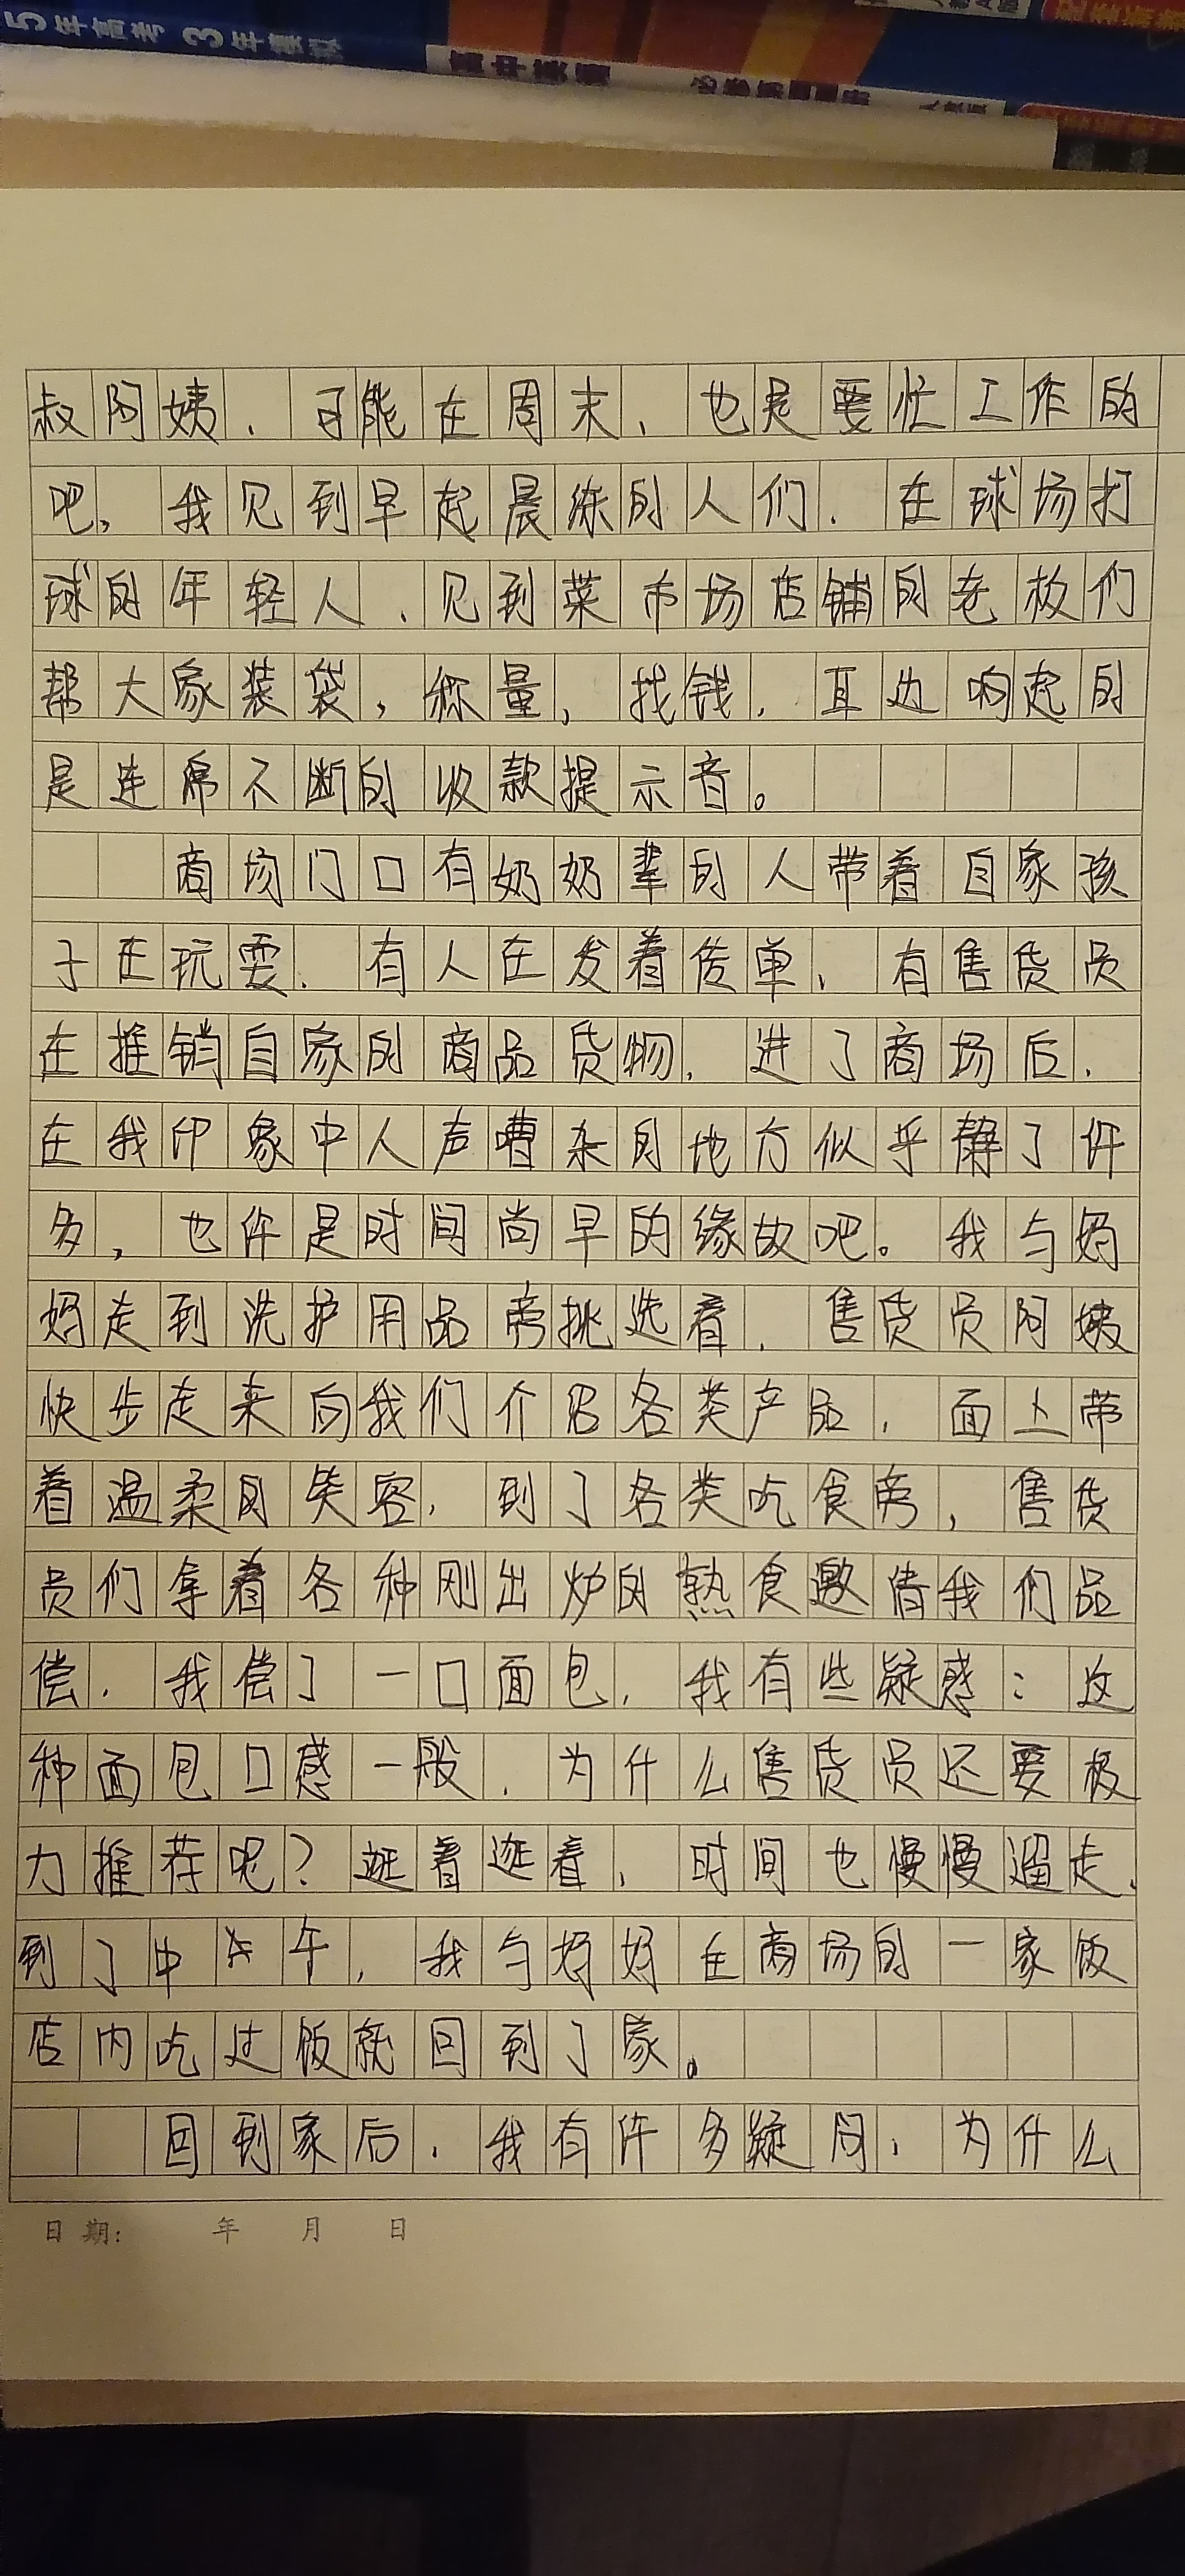 5年高考 3年模拟
高中英语 必修第四册 人教版
叔阿姨，可能在周末，也是要忙工作的
吧，我见到早起晨练的人们，在球场打
球的年轻人，见到菜市场店铺的老板们
帮大家装袋，称量，找钱，耳边响起的
是连席不断的收款提示音。
商场门口有奶奶辈的人带着自家孩
子在玩耍，有人在发着传单，有售货员
在推销自家的商品货物，进了商场后，
在我印象中人声嘈杂的地方似乎静了许
多，也许是时间尚早的缘故吧。我与妈
妈走到洗护用品旁挑选着，售货员阿姨
快步走来向我们介绍各类产品，面上带
着温柔的笑容，到了各类吃食旁，售货
员们拿着各种刚出炉的熟食邀请我们品
偿，我偿了一口面包，我有些疑惑：这
种面包口感一般，为什么售货员还要极
力推荐呢？逛着逛着，时间也慢慢遛走，
到了中午，我与妈妈在商场的一家饭
店内吃过饭就回到了家。
回到家后，我有许多疑问，为什么
日期： 年 月 日